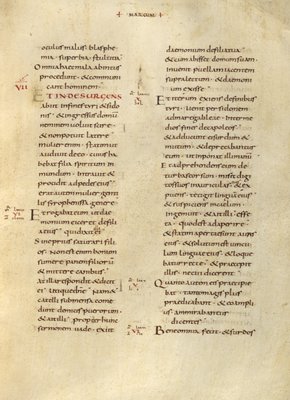 MARCUM
oculus malus blasphe
mia superbia stultitia
Omnia haec mala abintus
procedunt & communi
cant hominem
VII
ET INDE SURGENS
abiit in fines tyri & sido
nis & ingressus domu
neminem uoluit scire
& non potuit latere
mulier enim statim ut
audiuit de eo cuius ha
bebat filia spiritum in
mundum intrauit &
procidit ad pedes eius
erat autem mulier genti
lis syrophoenissa genere
Et rogabat eum ut dae
monium eiceret de fili
a eius qui dixit ei
Sine prius saturari fili
os Non est enim bonum
sumere panem filioru
& mittere canibus
At illa respondit & dicit
ei utique dne Nam &
catelli sub mensa come
dunt de micis puerorum
& ait illi propter hunc
sermonem uade exiit
daemonium de filia tua
& cum abisset domum suam
inuenit puellam iacentem
supra lectum & daemoniu
exisse
Et iterum exiens de finibus
tyri uenit per sidonem
ad mare galileae inter me
dios fines decapoleos
& adducunt ei surdum &
mutum & deprecabantur
eum ut imponat illi manum
Et adprehendens eum de
turba seorsum misit digi
tos suos in auriculas & ex
puens tetigit linguam eius
& suspiciens in caelum
ingemuit & ait illi effe
tha quod est adaperire
& statim apertae sunt aures
eius & solutum est uincu
lum linguae eius & loque
batur recte & praecepit
illis ne cui dicerent
Quanto autem eis praecipie
bat tanto magis plus
praedicabant & eo ampli
us ammirabantur
dicentes
Bene omnia fecit & surdos